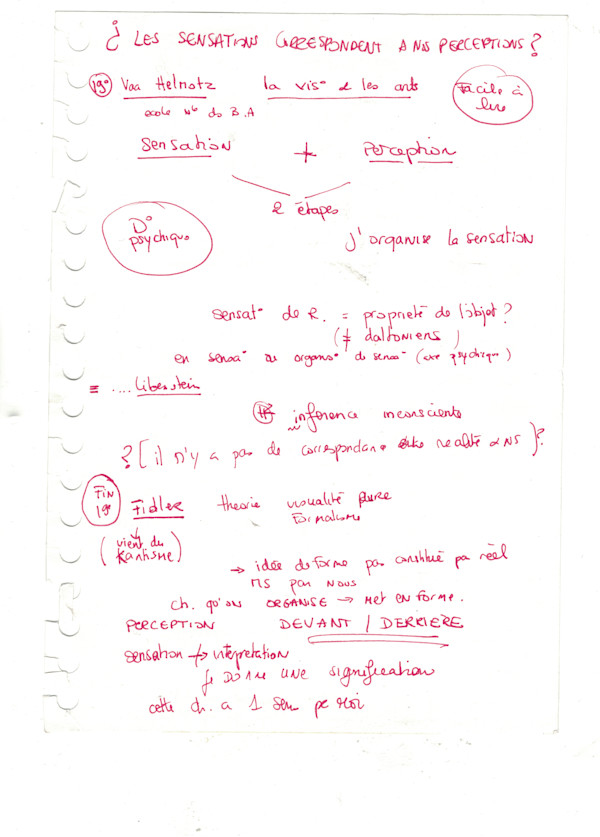 ¿ LES SENSATIONS CORRESPONDENT A NOS PERCEPTIONS ?
19° Van Helmotz la vis° & les arts Facile à lire
ecole nb de B.A
Sensation + Perception
2 étapes
D° psychique
j'organise la sensation
sensat° de R. = propriété de l'objet ?
(≠ daltoniens)
en sensa° ou organis° de sensa° (axe psychique)
= .... Libenstein
inférence inconsciente
? [ il n'y a pas de correspondance entre realité & NS ] ?
FIN 19° Fidler theorie visualité pure
Formalisme
(vient du Kantisme)
→ idée de forme pas constitué pa réel
MS par NOUS
ch. qu'on ORGANISE → met en forme.
PERCEPTION DEVANT / DERRIERE
sensation → interpretation
je DONNE UNE signification
cette ch. a 1 sens pr Moi